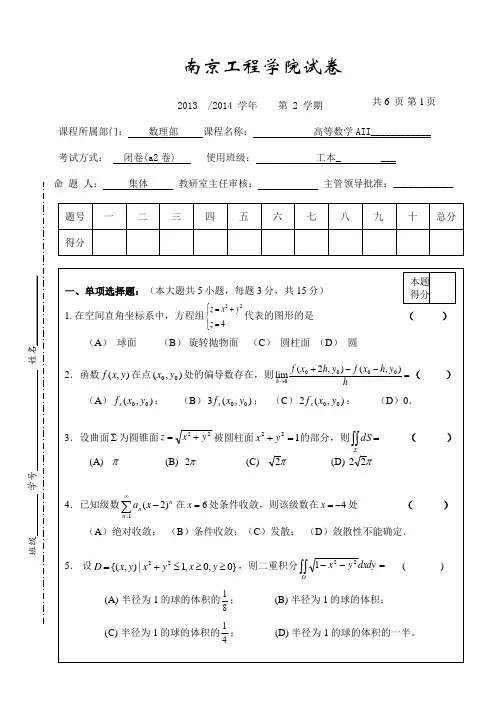 南京工程学院试卷
2013 /2014 学年 第 2 学期 共 6 页 第 1 页
课程所属部门: 数理部 课程名称: 高等数学AII____________
考试方式: 闭卷(a2卷) 使用班级: 工本_ ___
命 题 人: 集体 教研室主任审核: 主管领导批准:____________
题号 一 二 三 四 五 六 七 八 九 十 总分
得分
本题
得分
一、单项选择题:(本大题共5小题,每题3分,共15分)
1.在空间直角坐标系中,方程组{z=x²+y², z=4 代表的图形的是 ( )
(A) 球面 (B) 旋转抛物面 (C) 圆柱面 (D) 圆
2.函数f(x,y)在点(x₀,y₀)处的偏导数存在,则lim_{h→0} [f(x₀+2h,y₀)−f(x₀−h,y₀)]/h =( )
(A)fₓ(x₀,y₀); (B)3fₓ(x₀,y₀); (C)2fₓ(x₀,y₀); (D)0.
3.设曲面Σ为圆锥面z=√(x²+y²)被圆柱面x²+y²=1的部分,则∬_Σ dS= ( )
(A) π (B) 2π (C) √2π (D) 2√2π
4.已知级数∑_{n=1}^{∞} aₙ(x−2)ⁿ 在x=6处条件收敛,则该级数在x=−4处 ( )
(A)绝对收敛; (B)条件收敛;(C)发散; (D)敛散性不能确定.
5. 设D={(x,y)|x²+y²≤1,x≥0,y≥0},则二重积分∬_D √(1−x²−y²)dxdy= ( )
(A) 半径为1的球的体积的1/8; (B) 半径为1的球的体积;
(C) 半径为1的球的体积的1/4; (D) 半径为1的球的体积的一半。
班级 学号 姓名